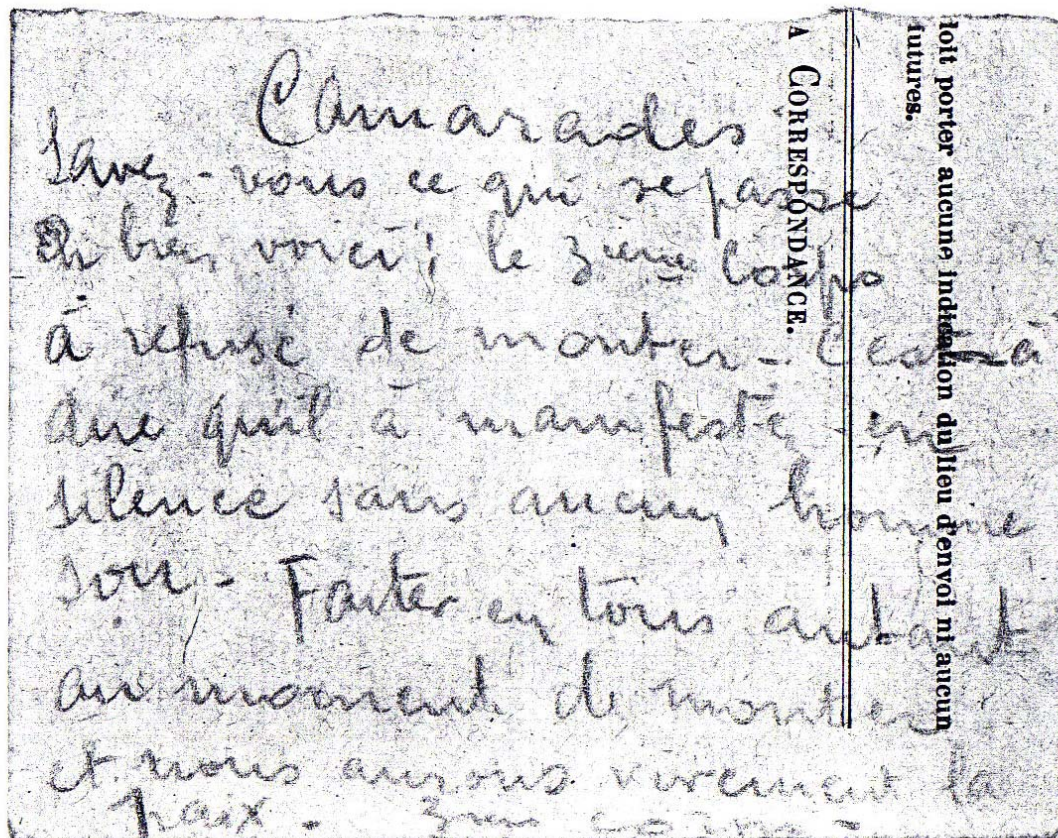 Camarades
Savez-vous ce qui se passe
Eh bien voici! le 3ieme Corps
à refusé de monter - C'est à
dire qu'il à manifesté en
silence sans aucun homme
sou - Faites en tous autant
au moment de monter
et nous aurons vivement la
paix - 3me corps -
A CORRESPONDANCE.
doit porter aucune indication du lieu d'envoi ni aucun
futures.